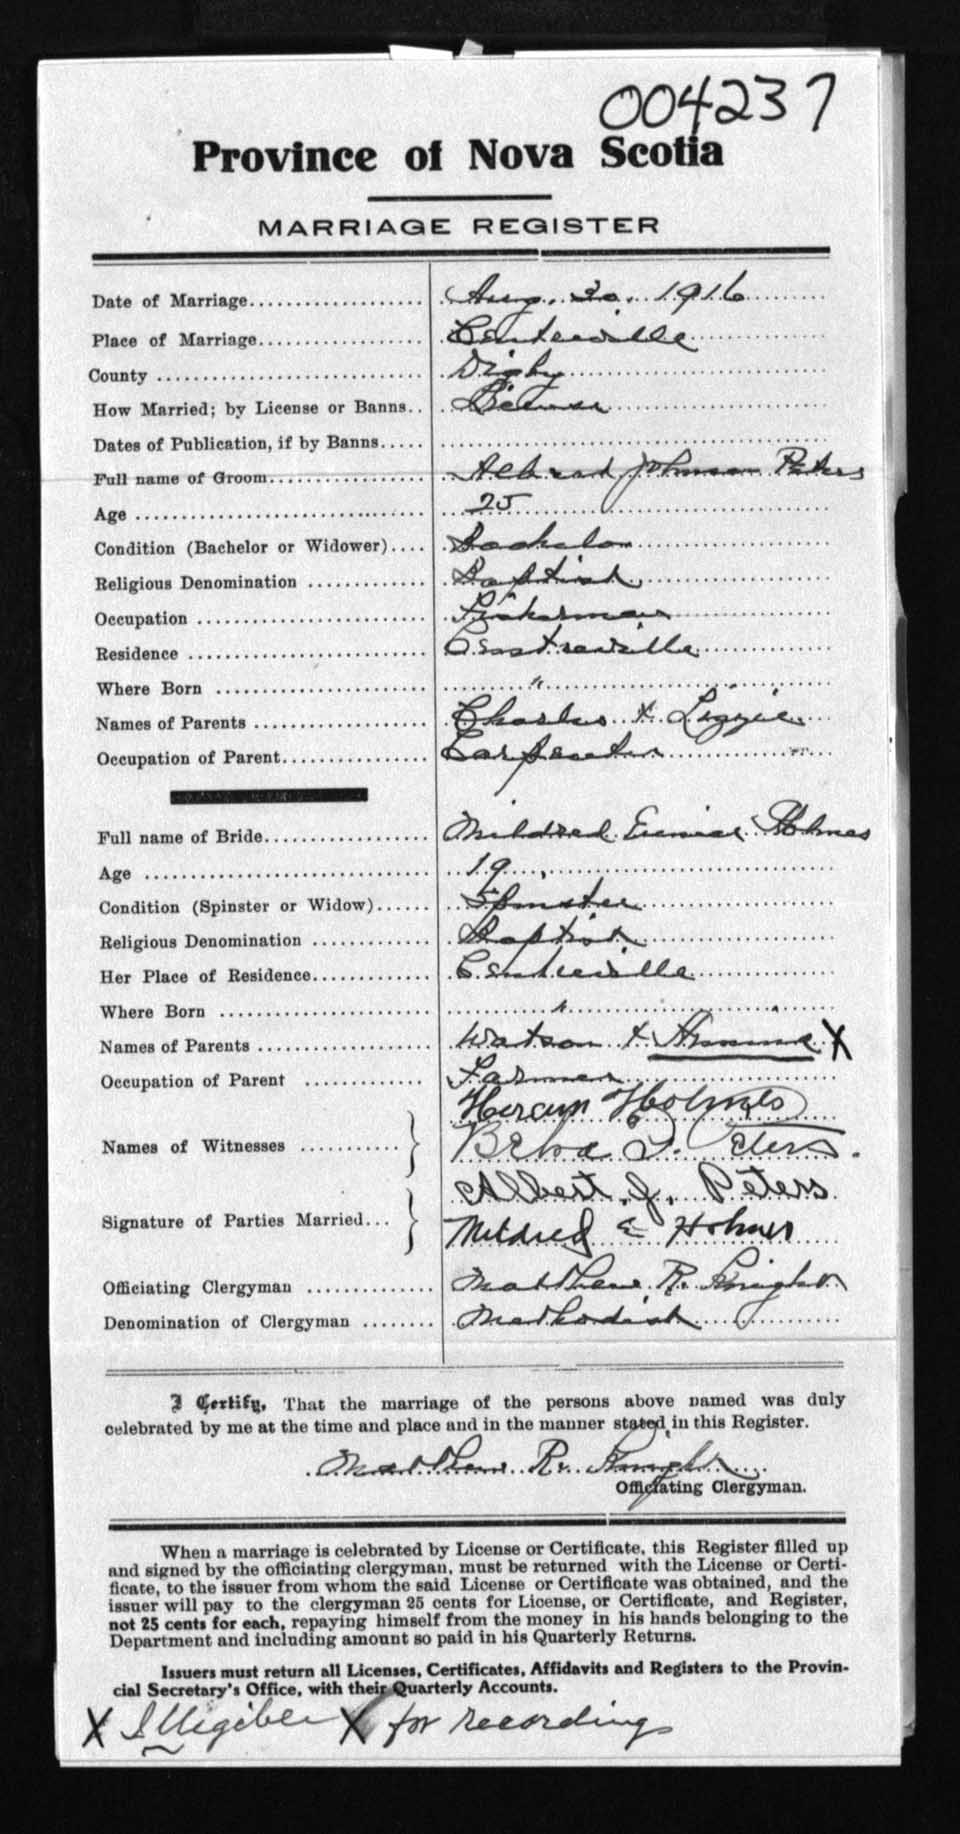 004237
Province of Nova Scotia
MARRIAGE REGISTER
Date of Marriage.................... Aug. 30. 1916
Place of Marriage................... Centreville
County ............................. Digby
How Married; by License or Banns.. License
Dates of Publication, if by Banns.....
Full name of Groom.................. Johnson Peters
Age ................................ 25
Condition (Bachelor or Widower).... Bachelor
Religious Denomination ............. Baptist
Occupation ......................... Fisherman
Residence .......................... Centreville
Where Born ......................... "
Names of Parents ................... Charles & Lizzie
Occupation of Parent................ Carpenter
Full name of Bride.................. Mildred Eunice Holmes
Age ................................ 19
Condition (Spinster or Widow)...... Spinster
Religious Denomination ............. Baptist
Her Place of Residence.............. Centreville
Where Born ......................... "
Names of Parents ................... Watson & X
Occupation of Parent ............ Farmer
Names of Witnesses ........... } Holmes
Peters.
Signature of Parties Married... } Albert J. Peters
Mildred E Holmes
Officiating Clergyman .............. Matthew R. Knight
Denomination of Clergyman ........ Methodist
I Certify, That the marriage of the persons above named was duly
celebrated by me at the time and place and in the manner stated in this Register.
Matthew R. Knight
Officiating Clergyman.
When a marriage is celebrated by License or Certificate, this Register filled up
and signed by the officiating clergyman, must be returned with the License or Certi-
ficate, to the issuer from whom the said License or Certificate was obtained, and the
issuer will pay to the clergyman 25 cents for License, or Certificate, and Register,
not 25 cents for each, repaying himself from the money in his hands belonging to the
Department and including amount so paid in his Quarterly Returns.
Issuers must return all Licenses, Certificates, Affidavits and Registers to the Provin-
cial Secretary's Office, with their Quarterly Accounts.
X Illegible X for recording